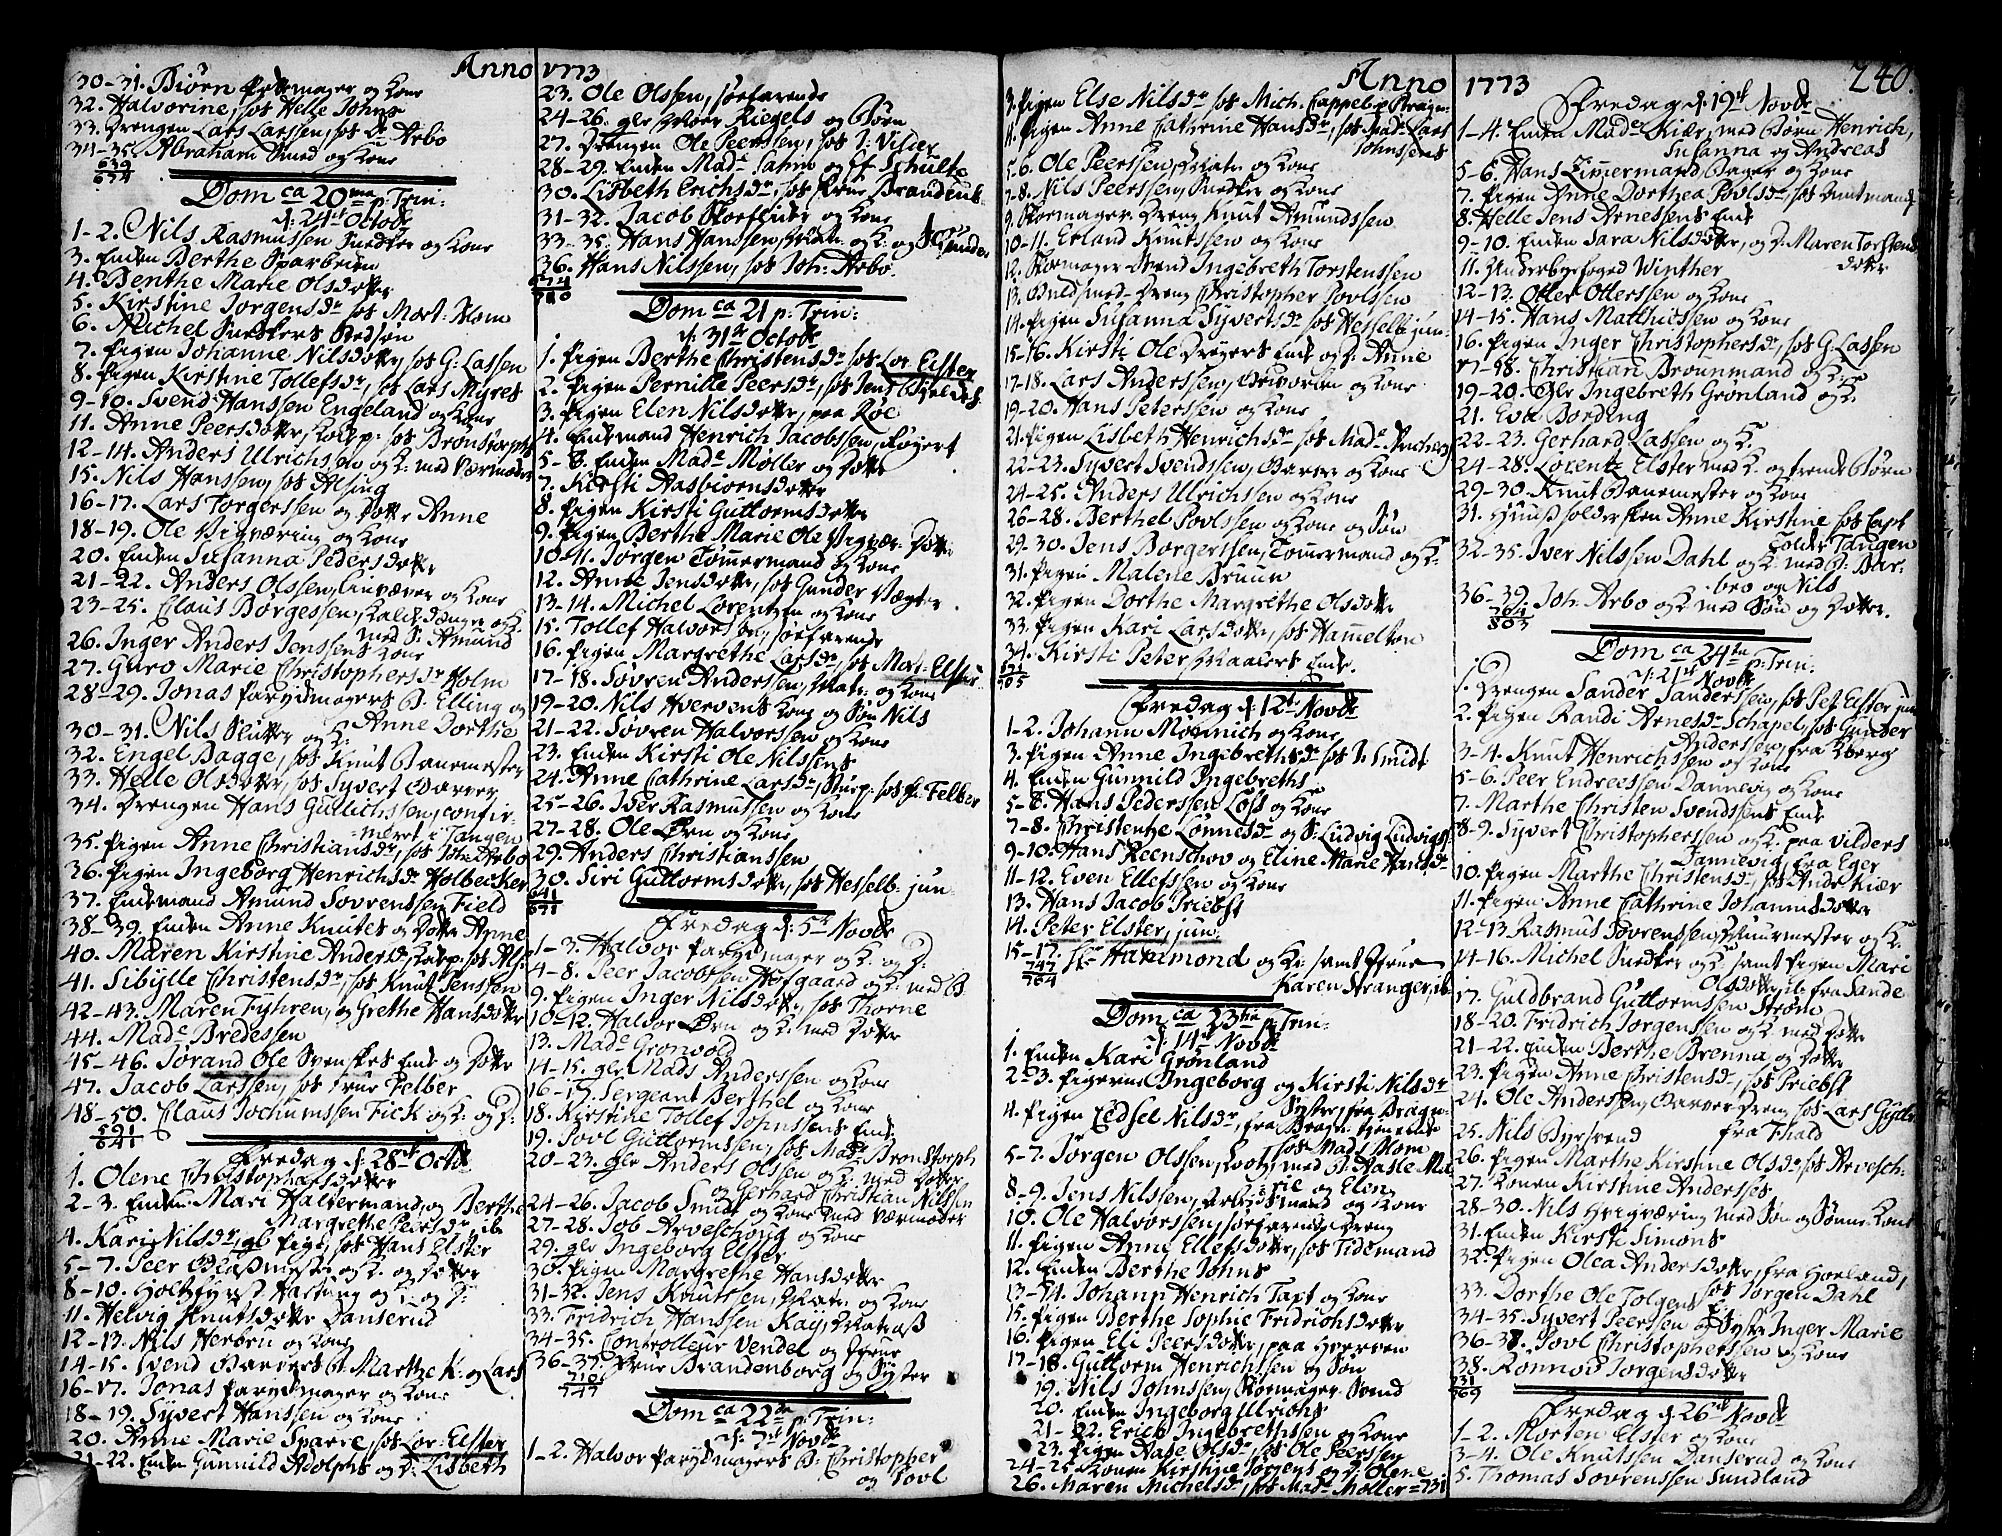 Anno 1773
30-31. Biørn Parykmager og Kone
32. Halvorine, hos Helle Johns
33. Drengen Lars Larssen, hos Dr Arbo
34-35. Abraham Smed og Kone
639
674
Dom ca 20ma p: Trin:
d: 24de Octobr
1-2. Nils Rasmussen Snedker og Kone
3. Enken Berthe Sparbeien
4. Benthe Marie Olsdotter
5. Kirstine Jorgensdr hos Mort: Blom
6. Michel Snedkers Stedsøn
7. Pigen Johanne Nilsdotter, hos G: Lassen
8. Pigen Kirstine Tollefsdr, hos Lars Myres
9-10. Svend Hanssen Engeland og Kone
11. Anne Peersdotter, hos Bronstorphs
12-14. Anders Ulrichsen og K: med Værmoder
15. Nils Hanssen, hos Alsing
16-17. Lars Torgerssen og Dotter Anne
18-19. Ole Vigværing og Kone
20. Enken Susanna Pedersdotter
21-22. Anders Olssen, Linværer og Kone
23-25. Claus Borgessen, og K:
med S: Amund
26. Inger Anders Jenssens Kone
27. Guro Marie Christophersdr Holm
28-29. Jonas Parykmagers B: Elling og
Anne Dorthe
30-31. Nils Slutter og K:
32. Engel Bagge, hos Knut Banemester
33. Helle Olsdotter, hos Syvert Garver
34. Drengen Hans Gullichssen, confir-
meert i Tangen
35. Pigen Anne Christiansdr, hos Joh: Arbo
36. Pigen Ingeborg Henrichsdr Holbecker
37. Enkemand Amund Sovrenssen Field
38-39. Enken Anne Knutes og Dotter Anne
40. Maren Kirstine Andersdr, hos Als:
41. Sibylle Christensdr, hos Knut Jenssen
42-43. Maren Fyhren, og Grethe Hansdotter
44. Made Bredessen
45-46. Jorand Ole Svenskes Enke og Dotter
47. Jacob Larssen, hos Frue Felber
48-50. Claus Jochumssen Fick og K: og D:
591
641
Fredag d: 28de Octbr
1. Olene Christophersdotter
2-3. Enken Mari Haltermand, og Berthe
Margrethe Peersdr, ib
4. Kari Nilsdr, gl Pige, hos Hans Elster
5-7. Peer Glasmester og K: og Dotter
8-10. Holtzfyrst Hartung og K: og D:
11. Helvig Knutsdotter Danserud
12-13. Nils Herbru og Kone
14-15. Svend Garvers B: Marthe K: og Lars
16-17. Jonas Parykmager og Kone
18-19. Syvert Hanssen og Kone
20. Anne Marie Sparre, hos Lor: Elster
21-22. Enken Gunnild Adolphs og D: Lisbeth
23. Ole Olssen, søefarende
24-26. Riegels og Børn
27. Drengen Ole Peerssen, hos J: Visler
28-29. Enken Made Jahn og Schultz
30. Lisbeth Erichsdr, hos Frue Brandenb:
31-32. Jacob Skorfeier og Kone
33-35. Hans Hanssen, Matr: og K: og S: Gunder
36. Hans Nilssen, hos Joh: Arbo.
674
710
Dom ca 21 p: Trin:
d: 31te Octobr
1. Pigen Berthe Christensdr hos Lor: Elster
2. Pigen Pernille Peersdr, hos Jens
3. Pigen Elen Nilsdotter, paa Røe
4. Enkemand Henrich Jacobssen, Røgert
5-6. Enken Made Møller og Dotter
7. Kirsti Aasbiørnsdotter
8. Pigen Kirsti Guttormsdotter
9. Pigen Berthe Marie Ole Vigvær: Dotter
10-11. Jorgen Tømmermand og Kone
12. Anne Jensdotter, hos Gunder Vægter
13-14. Michel Lorentzen og Kone
15. Tollef Halvorssen, søefarende
16. Pigen Margrethe Larsdr, hos Mort: Elster
17-18. Søvren Anderssen, Matr: og Kone
19-20. Nils Hvervens Kone og Søn Nils
21-22. Søvren Halvorssen og Kone
23. Enken Kirsti Ole Nilssens
24. Anne Cathrine Larsdr, hos Felber
25-26. Iver Rasmussen og Kone
27-28. Ole Ørn og Kone
29. Anders Christianssen
30. Siri Guttormsdotter, hos Hesselb: jun:
641
671
Fredag d: 5te Novbr
1-3. Halvor Parykmager og K: og D:
4-8. Peer Jacobssen Hofgaard og K: med B:
9. Pigen Inger Nilsdotter, hos Thorne
10-12. Halvor Ørn og K: med Dotter
13. Made Gronvold
14-15. glr Mads Anderssen og Kone
16-17. Sergeant Berthel og Kone
18. Kirstine Tollef Johnssens Enke
19. Povl Guttormssen, hos Made Bronstorph
20-23. glr Anders Olssen og K: med Dotter
og Gerhard Christian Nilssen
24-26. Jacob Smidt og Kone med Værmoder
27-28. Job Arveschoug og Kone
29. glr Ingeborg Elster
30. Pigen Margrethe Hansdotter
31-32. Jens Knutssen, Matr: og Kone
33. Fridrich Hanssen Kay, Matros
34-35. Controlleur Vendel og Frue
36-37. Frue Brandenborg og Syster
710
747
Dom ca 22de p: Trin:
d: 7de Novbr
1-2. Halvor Parykmagers B: Christopher
og Povl
Anno 1773
3. Pigen Else Nilsdr hos Mich: Cappel p: Bragn:
4. Pigen Anne Cathrine Hansdr, hos Made Lars
Johnssens
5-6. Ole Peerssen, Matr: og Kone
7-8. Nils Peerssen, Snedker og Kone
9. Skomager-Dreng Knut Amundssen
10-11. Erland Knutssen og Kone
12. Skomager-Svend Ingebreth Torstenssen
13. Guldsmed-Dreng Christopher Povlssen
14. Pigen Susanna Syvertsdr hos Hesselb: jun:
15-16. Kirsti Ole Dreyers Enke og D: Anne
17-18. Lars Anderssen, og Kone
19-20. Hans Peterssen og Kone
21. Pigen Lisbeth Henrichsdr hos Made
22-23. Syvert Svendssen, Garver og Kone
24-25. Anders Ulrichssen og Kone
26-28. Berthel Povlssen og Kone og Søn
29-30. Jens Borgerssen, Tømmermand og K:
31. Pigen Malene Bruun
32. Pigen Dorthe Margrethe Olsdotter
33. Pigen Kari Larsdotter, hos Hamelton
34. Kirsti Peter Maalers Enke.
671
705
Fredag d: 12te Novbr
1-2. Johann Monnich og Kone
3. Pigen Anne Ingebrethsdr hos J: Smidt
4. Enken Gunnild Ingebreths
5-6. Hans Pederssen Loss og Kone
7-8. Christentze Lonnesdr og S: Ludvig Ludvigs:
9-10. Hans Reenschov og Eline Marie Hansdr
11-12. Even Ellefssen og Kone
13. Hans Jacob Priebst
14. Peter Elster, jun:
15-17. Hr Hammond og K: samt Frue
Karen Stranger, ib
747
764
Dom ca 23de p: Trin:
d: 14de Novbr
1. Enken Kari Grønland
2-3. Pigerne Ingeborg og Kirsti Nilsdr
Syster, fra Bragn:
4. Pigen Edsel Nilsdr, fra Bragn:
hos Made Blom
5-7. Jørgen Olssen, Loots, med B: Aasle Ma-
rie og Elen
8-9. Jens Nilssen, Arbeidsmand og Kone
10. Ole Halvorssen, søefarende Dreng
11. Pigen Anne Ellefsdotter, hos Tidemand
12. Enken Berthe Johns
13-14. Johann Henrich Taxt og Kone
15. Pigen Berthe Sophie Fridrichsdotter
16. Pigen Eli Peersdotter, paa Hverven
17-18. Guttorm Henrichssen og Søn
19. Nils Johnssen, Skomager-Svend
20. Enken Ingeborg Ulrichs
21-22. Erich Ingebrethssen og Kone
23. Pigen Aase Olsdr, hos Ole Peerssen
24-25. Konen Kirstine Jorgens og D: Olene
26. Maren Michelsdr, hos Made Møller = 731
240.
Fredag d: 19de Novbr
1-4. Enken Made Kiær, med Børn Henrich,
Susanna og Andreas
5-6. Hans Zimmermand, Bager og Kone
7. Pigen Anne Dorthea Povlsdr, hos Amtmand
8. Helle Jens Arnessens Enke
9-10. Enken Sara Nilsdotter, og D: Maren Torstens
dotter
11. Underbyefoged Winther
12-13. Otter Otterssen og Kone
14-15. Hans Matthiessen og Kone
16. Pigen Inger Christophersdr, hos G: Lassen
17-18. Christian Brounmand og K:
19-20. Glr Ingebreth Grønland og K:
21. Eva Bording
22-23. Gerhard Lassen og K:
24-28. Lorentz Elster med K: og trende Børn
29-30. Knut Banemester og Kone
31. Huusholdersken Anne Kirstine hos Capt
Tolder Tangen
32-35. Iver Nilssen Dahl og K: med B: Bar-
bro og Nils
36-39. Joh: Arbo og K: med Søn og Dotter.
764
803
Dom ca 24de p: Trin:
d: 21de Novbr
1. Drengen Sander Sanderssen, hos Pet: Elster jun
2. Pigen Randi Arnesdr Schapel, hos Gunder
Anderssen, fra Kberg
3-4. Knut Henrichssen og Kone
5-6. Peer Endressen Dannevig og Kone
7. Marthe Christen Svendssens Enke
8-9. Syvert Christopherssen og K: paa Vilders
Dannevig, fra Eger
10. Pigen Marthe Christensdr, hos Andr: Kiær
11. Pigen Anne Cathrine Johannisdotter
12-13. Rasmus Søvrenssen, Muurmester og K:
14-16. Michel Snedker og K: samt Pigen Mari
Olsdotter, ib fra Sande
17. Guldbrand Guttormssen Strøm
18-20. Fridrich Jorgenssen og K: med Dotter
21-22. Enken Berthe Brenna og Dotter
23. Pigen Anne Christensdr, hos Priebst
24. Ole Anderssen, Garver-Dreng hos Lars Gylle
25. Nils Byesvend fra Fhald
26. Pigen Marthe Kirstine Olsdr, hos Arvesch:
27. Konen Kirstine Anderssøs
28-30. Nils Hvigværing med Søn og Sønne-Kone
31. Enken Kirsti Simons
32. Pigen Olea Andersdotter, fra Hoeland,
hos Jorgen Dahl
33. Dorthe Ole Tolgens E:
34-35. Syvert Peerssen og Syster Inger Marie
36-37. Povl Christopherssen og Kone
38. Ronnov Jorgensdotter
731
769
Fredag d: 26de Novbr
1-2. Morten Elster og Kone
3-4. Ole Knutssen Danserud og Kone
5. Thomas Sovrenssen Sundland